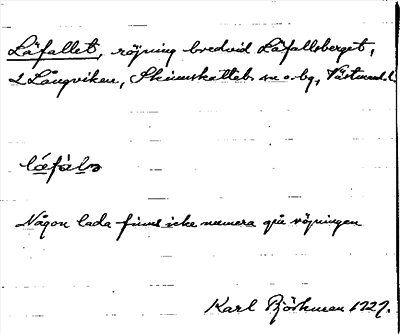 Läfallet, röjning bredvid Läfallsberget,
Långviken, Skinnskatteb. sn o. bg, Västmanl.
Någon lada finns icke numera på röjningen
Karl Björkman 1927.